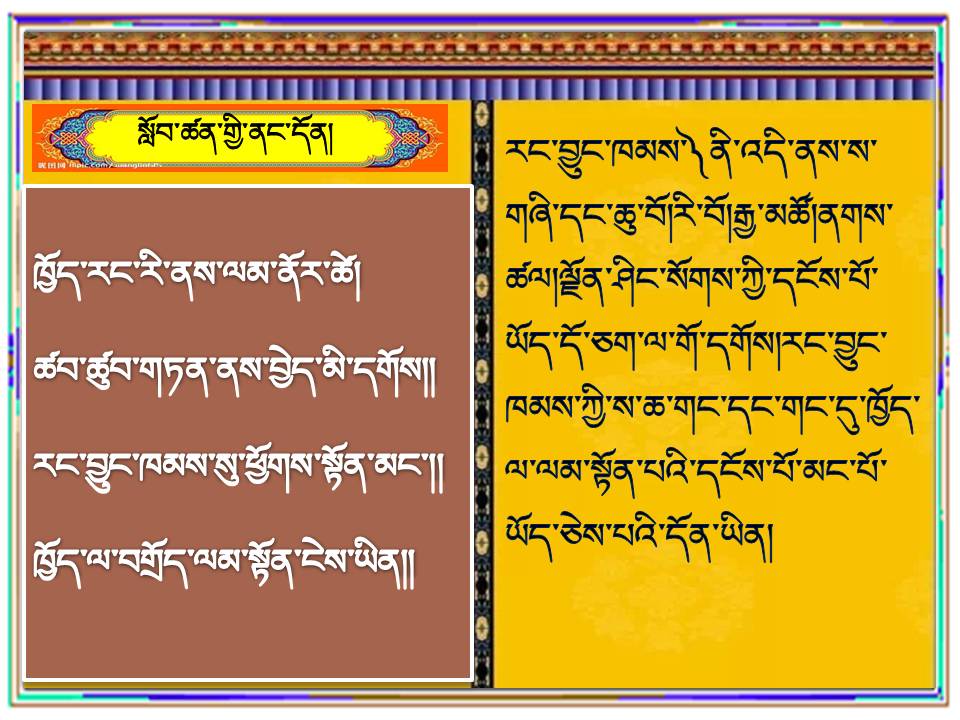 སློབ་ཚན་གྱི་ནང་དོན།
ཁྱོད་རང་རི་ནས་ལམ་ནོར་ཚེ།
ཚབ་ཚུབ་གཏན་ནས་བྱེད་མི་དགོས།།
རང་བྱུང་ཁམས་སུ་ཕྱོགས་སྟོན་མང་།།
ཁྱོད་ལ་བགྲོད་ལམ་སྟོན་ངེས་ཡིན།།
རང་བྱུང་ཁམས་ཏེ ནི་འདི་ནས་ས་
གཞི་དང་ཆུ་བོ།རི་བོ།རྒྱ་མཚོ།ནགས་
ཚལ།ལྗོན་ཤིང་སོགས་ཀྱི་དངོས་པོ་
ཡོད་དོ་ཅག་ལ་གོ་དགོས།རང་བྱུང་
ཁམས་ཀྱི་ས་ཆ་གང་དང་གང་དུ་ཁྱོད་
ལ་ལམ་སྟོན་པའི་དངོས་པོ་མང་པོ་
ཡོད་ཅེས་པའི་དོན་ཡིན།